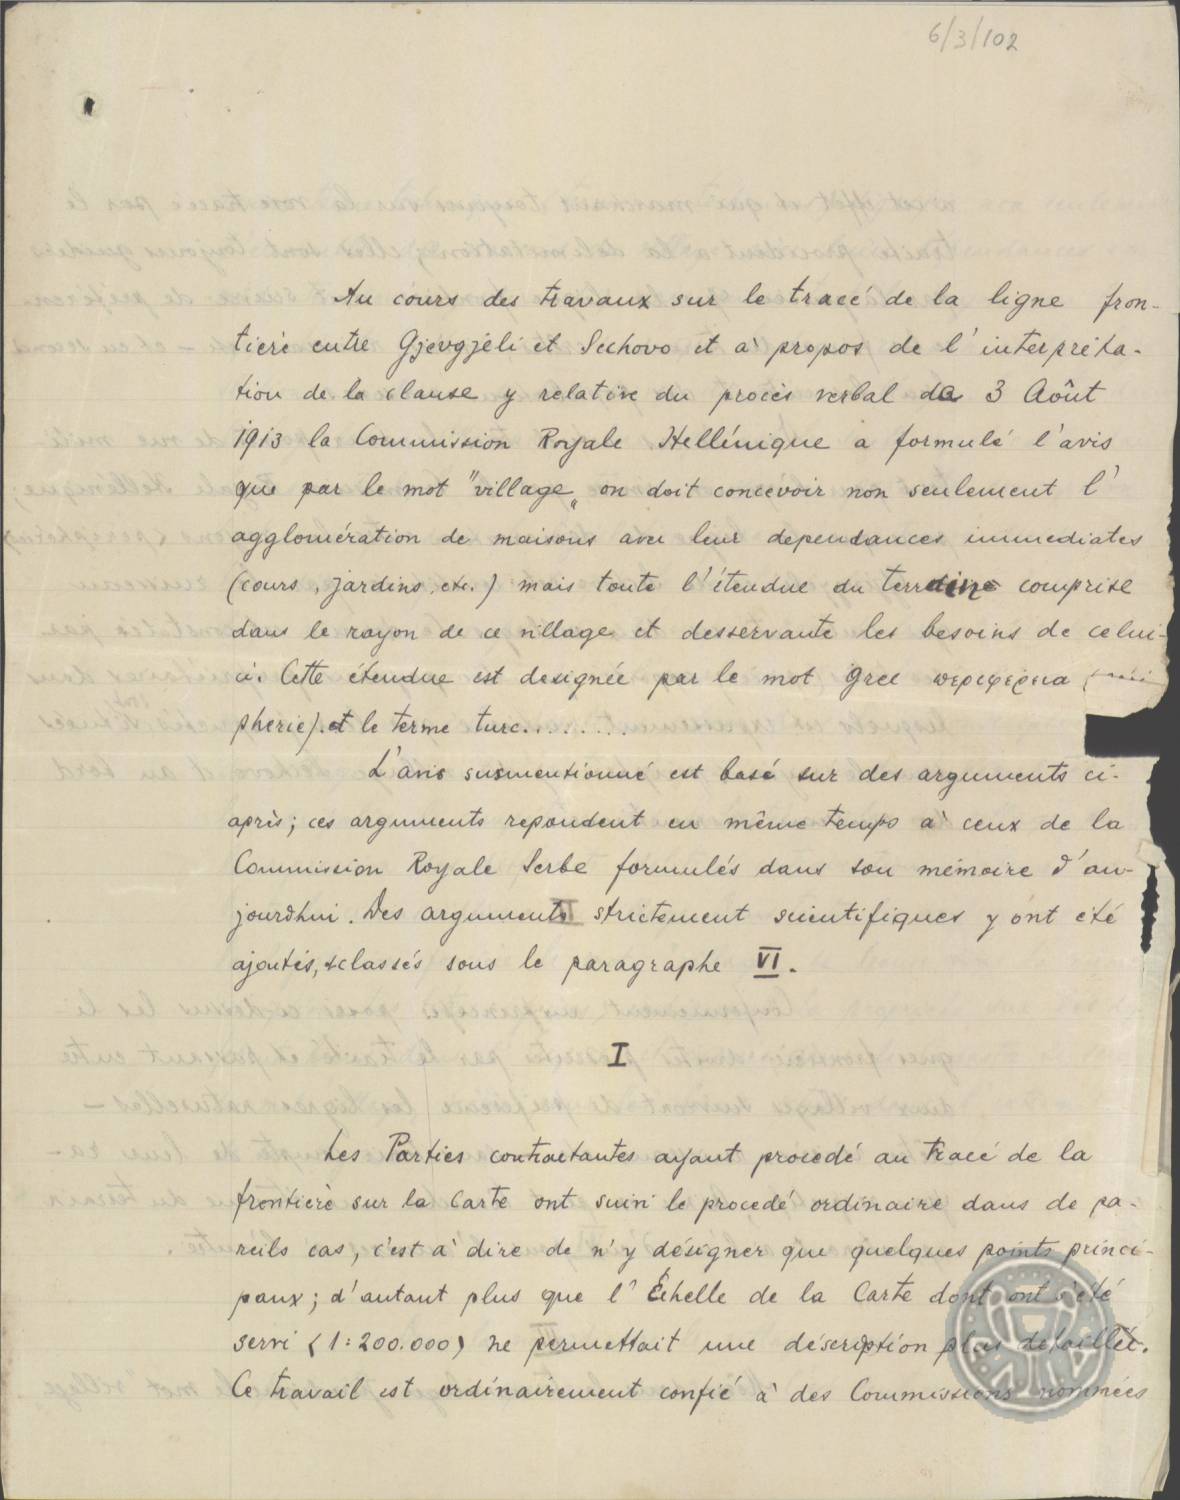 6/3/102
Au cours des travaux sur le tracé de la ligne fron-
tière entre Gjevgjéli et Sechovo et à propos de l'interpréta-
tion de la clause y relative du procès verbal de 3 Août
1913 la Commission Royale Hellénique a formulé l'avis
que par le mot "village„ on doit concevoir non seulement l'
agglomération de maisons avec leur dependances immediates
(cours, jardins, etc.) mais toute l'étendue du terraine comprise
dans le rayon de ce village et desservante les besoins de celui-
ci. Cette étendue est designée par le mot grec περιφερεια
pherie). et le terme turc........
L'avis susmentionné est basé sur des arguments ci-
après; ces arguments repondent en même temps à ceux de la
Commission Royale Serbe formulés dans son mémoire d'au-
jourdhui. Des arguments strictement scientifiques y ont été
ajoutés, classés sous le paragraphe VI.
I
Les Parties contractantes ayant procedé au tracé de la
frontière sur la Carte ont suivi le procedé ordinaire dans de pa-
reils cas, c'est à dire de n'y désigner que quelques points princi-
paux; d'autant plus que l'Échelle de la Carte dont ont s'été
servi (1:200.000) ne permettait une déscription plus detaillée.
Ce travail est ordinairement confié à des Commissions nommées